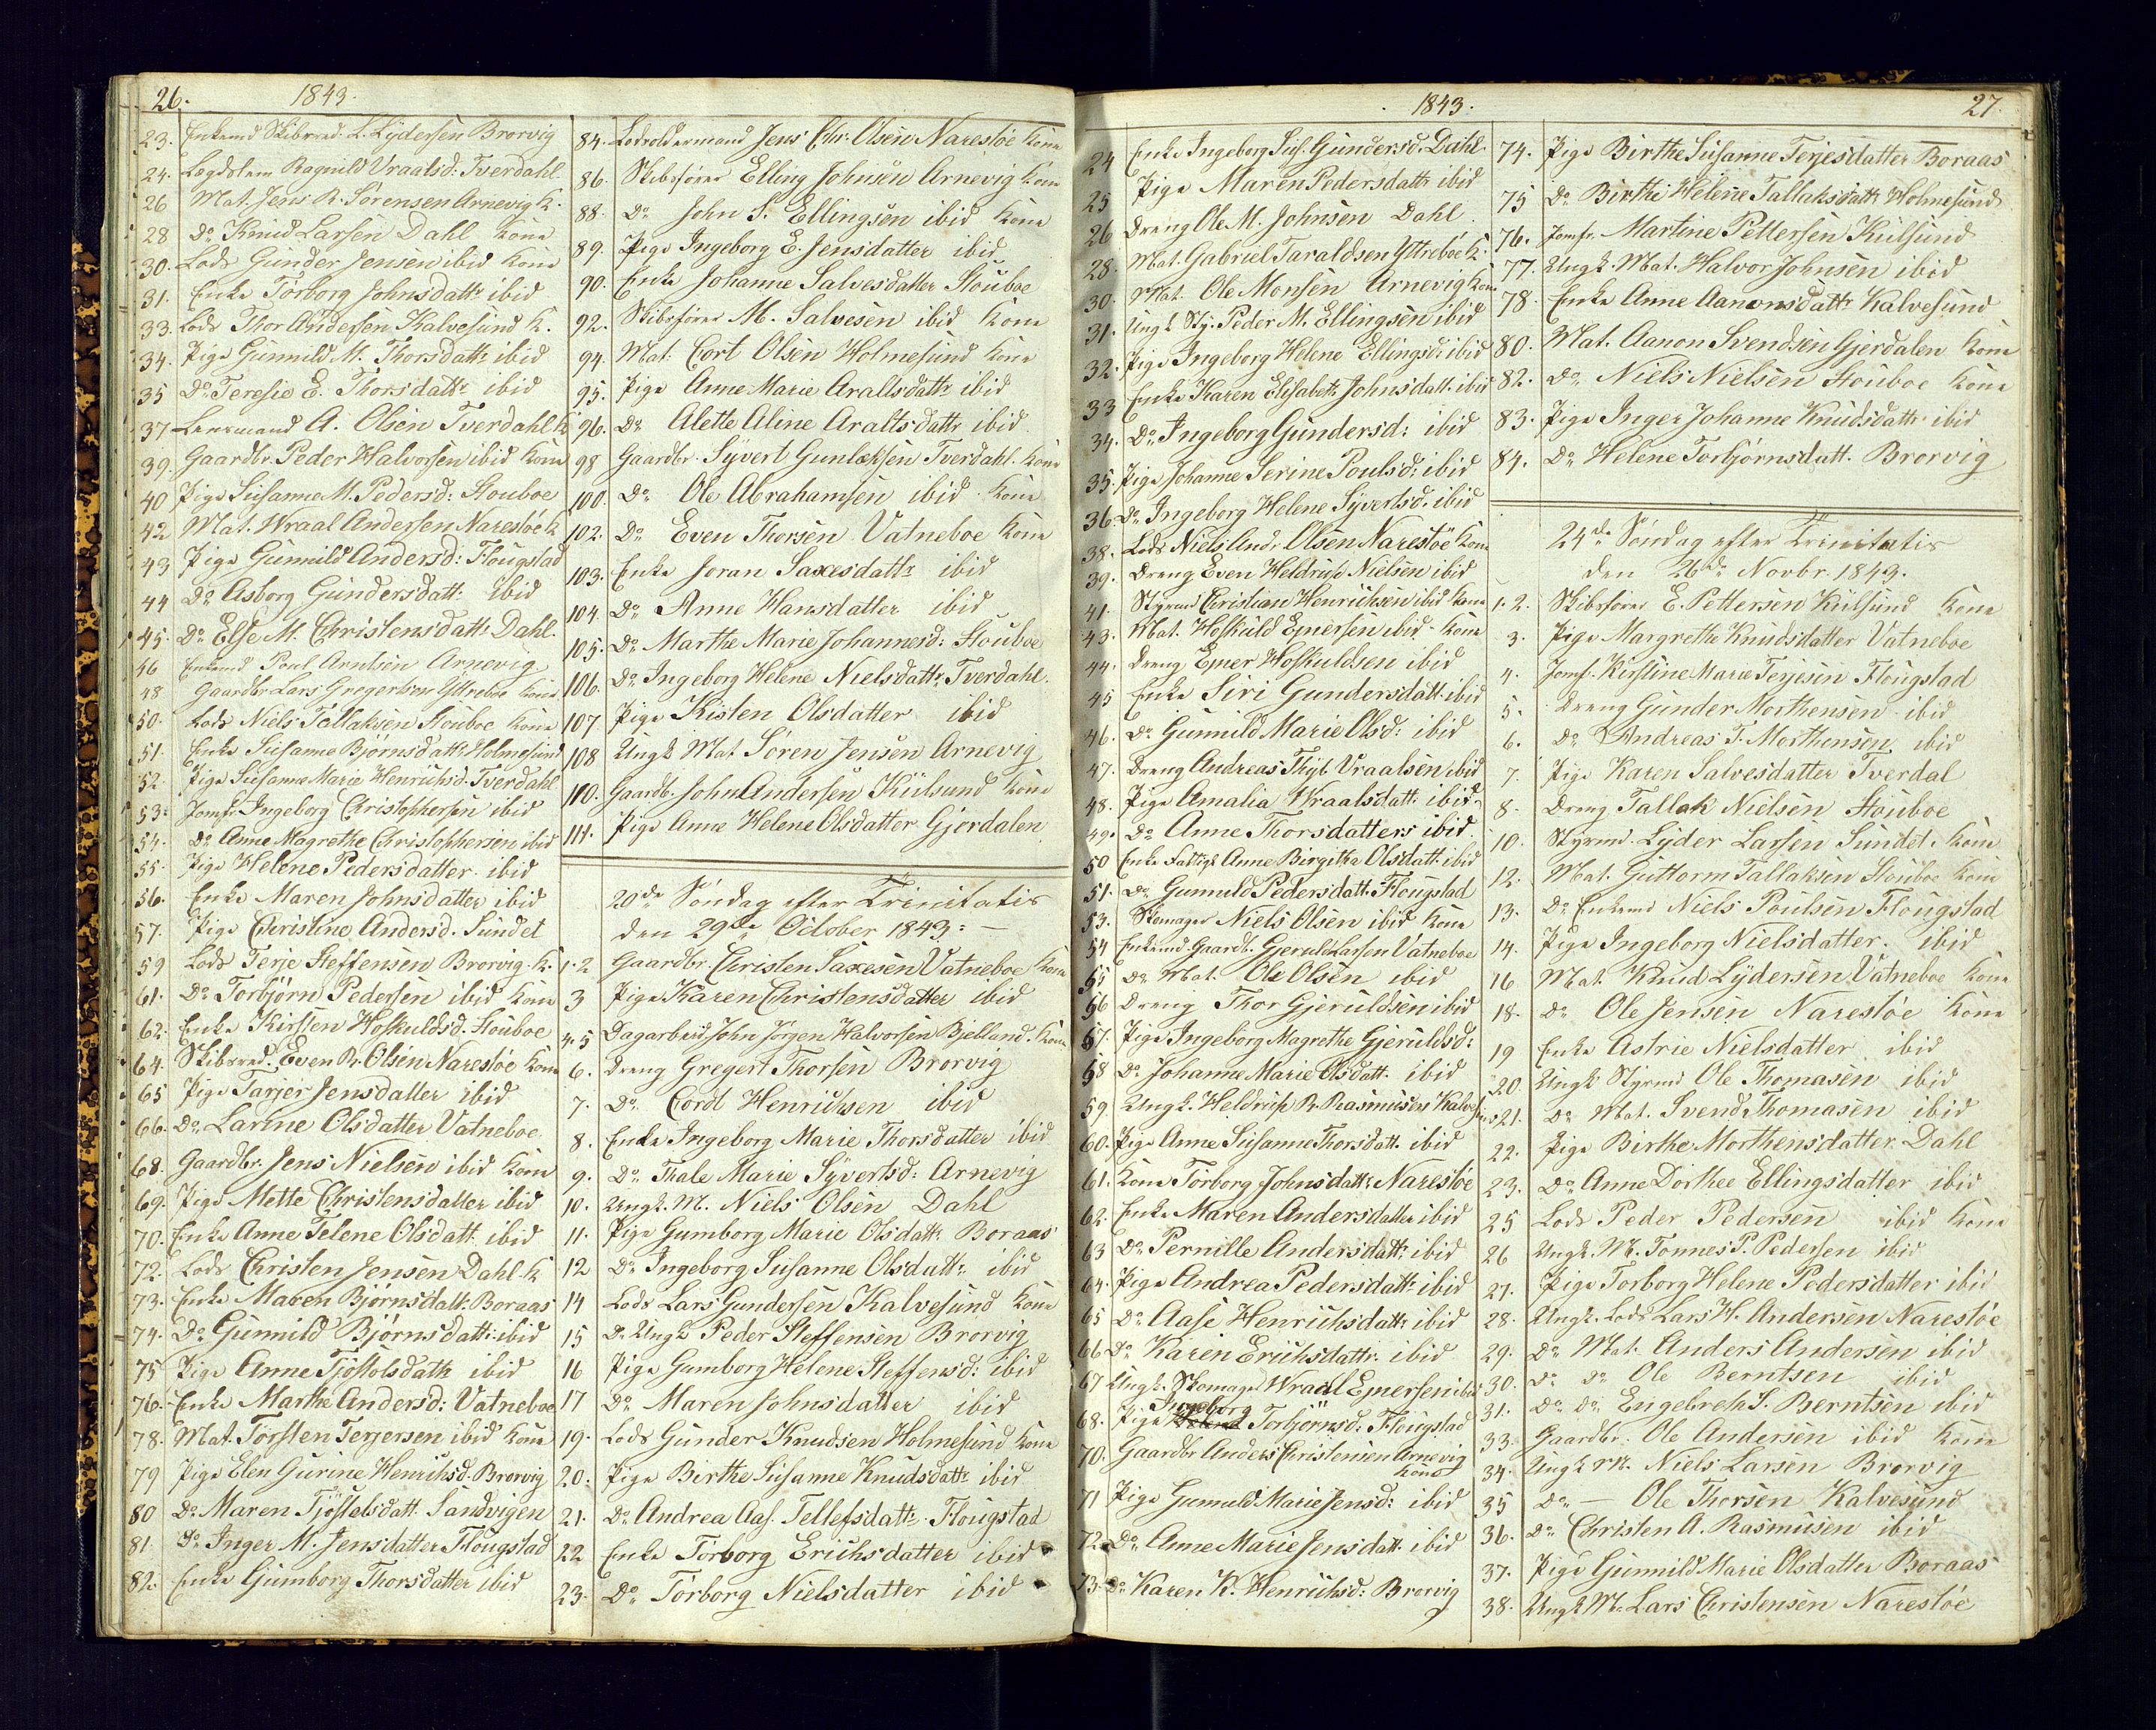 26. 1843.
23. Enkemd Skibsred. L. Lydersen Brorvig
24. Lægdslem Ragnild Vraalsd: Tverdahl
26 Mat. Jens R. Sørensen Arnevig K.
28 Do Knud Larsen Dahl Kone
30. Lods Gunder Jensen ibid Kone
31. Enke Torborg Johnsdattr ibid
33. Lods Thor Andersen Kalvesund K.
34. Pige Gunnild M. Thorsdattr ibid
35 Do Teresie E. Thorsdattr ibid
37 Lensmand A. Olsen Tverdahl K
39. Gaardbr. Peder Halvorsen ibid Kone
40 Pige Susanne M. Pedersd: Stouboe
42 Mat. Wraal Andersen Narestöe K
43 Pige Gunnild Andersd: Flougstad
44 Do Asborg Gundersdatt: ibid
45. Do Else M. Christensdattr Dahl.
46 Enkemd Poul Arntsen Arnevig
48 Gaardbr Lars Gregertsen Yttreboe Kone
50. Lods Niels Tallaksen Stouboe Kone
51. Enke Susanne Bjørnsdattr Holmesund
52. Pige Susanne Marie Henrichsd. Tverdahl
53. Jomfr Ingeborg Christophersen ibid
54. Do Anne Magrethe Christophersen ibid
55. Pige Helene Pedersdatter ibid
56. Enke Maren Johnsdatter ibid
57. Pige Christine Andersd. Sundet
59 Lods Terje Steffensen Brorvig K.
61. Do Torbjørn Pedersen ibid Kone
62. Enke Kirsten Hoskuldsd. Stouboe
64. Skibsred. Even R. Olsen Narestöe Kone
65 Pige Tarjer Jensdatter ibid
66. Do Larine Olsdatter Vatneboe
68. Gaardbr. Jens Nielsen ibid Kone
69. Pige Mette Christensdatter ibid
70. Enke Anne Telene Olsdatt. ibid
72. Lods Christen Jensen Dahl K
73. Enke Maren Bjornsdatt. Boraas
74. Do Gunnild Bjørnsdatt: ibid
75 Pige Anne Tjøstolsdatr ibid
76. Enke Marthe Andersd: Vatneboe
78. Mat. Torsten Terjersen ibid Kone
79 Pige Elen Gurine Henrichsd. Brorvig
80 Do Maren Tjøstelsdatt. Sandvigen
81. Do Inger M. Jensdatter Flougstad
82. Enke Gumborg Thorsdatter ibid
84. Lodsoldermand Jens Chr. Olsen Narestöe Kone
86. Skibsfører Elling Johnsen Arnevig Kone
88. Do John S. Ellingsen ibid Kone
89. Pige Ingeborg E. Jensdatter ibid
90. Enke Johanne Salvesdatter Stouboe
92. Skibsfører M. Salvesen ibid Kone
94. Mat. Cort Olsen Holmesund Kone
95. Pige Anne Marie Araltsdattr ibid
96. Do Alette Aline Araltsdattr ibid
98 Gaardbr. Syvert Gunlæksen Tverdahl. Kone
100. Do Ole Abrahamsen ibid Kone
102. Do Even Thorsen Vatneboe Kone
103. Enke Joran Saxesdattr ibid
104. Do Anne Hansdatter ibid
105. Do Marthe Marie Johannesd: Stouboe
106. Do Ingeborg Helene Nielsdattr Tverdahl.
107 Pige Kisten Olsdatter ibid
108 Ungk Mat Søren Jensen Arnevig
110. Gaardb. John Andersen Külsund Kone
111. Pige Anne Helene Olsdatter Gjerdalen
20de Søndag efter Trinitatis
den 29de October 1843:
1.2 Gaardbr. Christen Saxesen Vatneboe Kone
3 Pige Karen Christensdatter ibid
4.5 Dagarbeid John Jörgen Halvorsen Bjelland. Kone
6. Dreng Gregert Thorsen Brorvig
7. Do Cordt Henrichsen ibid
8. Enke Ingeborg Marie Thorsdatter ibid
9. Do Thale Marie Syvertsd: Arnevig
10. Ungk. M. Niels Olsen Dahl
11. Pige Gumborg Marie Olsdattr Boraas
12 Do Ingeborg Susanne Olsdattr ibid
14 Lods Lars Gundersen Kalvesund Kone
15 Do Ungk Peder Steffensen Brorvig
16 Pige Gumborg Helene Steffensd: ibid
17 Do Maren Johnsdatter ibid
19. Lods Gunder Knudsen Holmesund Kone
20. Pige Birthe Susanne Knudsdattr ibid
21. Do Andrea Aas. Tellefsdattr Flougstad
22 Enke Torborg Erichsdatter ibid
23. Do Torborg Nielsdatter ibid
1843. 27.
24 Enke Ingeborg Sus. Gundersd. Dahl
25 Pige Maren Pedersdattr ibid
26 Dreng Ole M. Johnsen Dahl.
28. Mat. Gabriel Taraldsen Yttreboe K.
30. Mat. Ole Monsen Arnevig Kone
31. Ungk Sty. Peder M. Ellingsen ibid
32. Pige Ingeborg Helene Ellingsd. ibid
33 Enke Karen Elisabeth Johnsdatt. ibid
34. Do Ingeborg Gundersd: ibid
35. Pige Johanne Serine Poulsd: ibid
36. Do Ingeborg Helene Syvertsd. ibid
38. Lods Niels Andr. Olsen Narestöe Kone
39. Dreng Even Heldrup Nielsen ibid
41. Styrmd Christian Henrichsen ibid Kone
43. Mat. Hoskuld Ejnersen ibid Kone
44. Dreng Ejner Hoskuldsen ibid
45 Enke Siri Gundersdatt. ibid
46. Do Gunnild Marie Olsd: ibid
47. Dreng Andreas Thyb. Vraalsen ibid
48. Pige Amalia Wraalsdatt. ibid
49. Do Anne Thorsdatters ibid
50 Enke Fattigs Anne Birgithe Olsdatt. ibid
51. Do Gunnuld Pedersdatt. Flougstad
53. Skomager Niels Olsen ibid Kone
54 Enkemd Gaardb. Gjeruld Larsen Vatneboe
55 Do Mat. Ole Olsen ibid
56 Dreng Thor Gjeruldsen ibid
57. Pige Ingeborg Magrethe Gjeruldsd:
58 Do Johanne Marie Olsdatt. ibid
59 Ungk. Heldrup R. Rasmusen Kalvesu
60. Pige Anne Susanne Thorsdatt. ibid
61. Kone Torborg Johnsdattr Narestöe
62. Enke Maren Andersdatter ibid
63 Do Pernille Andersdattr ibid
64. Pige Andrea Pedersdattr ibid
65 Do Aase Henrichsdattr ibid
66 Do Karen Erichsdattr. ibid
67 Ungk. Skomager Wraal Ejnersen ibid
Ingeborg
68. Pige Torbjörnsd: Flougstad
70. Gaardbr Anders Christensen Arnevig
Kone
71 Pige Gunnuld Marie Jensd: ibid
72. Do Anne Marie Jensdatt. ibid
73. Do Karen K. Henrichsd: Brorvig
74. Pige Birthe Susanne Terjesdatter Boraas
75 Do Birthe Helene Tallaksdattr Holmesund
76. Jomfr. Martine Pettersen Külsund
77. Ungk. Mat. Halvor Johnsen ibid
78. Enke Anne Aanonsdattr Kalvesund
80. Mat. Aanon Svendsen Gjerdalen Kone
82. Do Niels Nielsen Stouboe Kone
83. Pige Inger Johanne Knudsdattr ibid
84. Do Helene Torbjörnsdatt. Brorvig
24de Søndag efter Trinitatis
den 26de Novbr. 1843.
1.2. Skibsfører E. Pettersen Külsund Kone
3. Pige Margrethe Knudsdatter Vatneboe
4. Jomf. Kirstine Marie Terjesen Flougstad
5. Dreng Gunder Morthensen ibid
6. Do Andreas T. Morthensen ibid
7. Pige Karen Salvesdatter Tverdal
8. Dreng Tallak Nielsen Stouboe
10. Styrmd. Lyder Larsen Sundet. Kone
12. Mat. Guttorm Tallaksen Stouboe Kone
13. Do Enkemd Niels Poulsen Flougstad
14. Pige Ingeborg Nielsdatter. ibid
16 Mat. Knud Lydersen Vatneboe Kone
18. Do Ole Jensen Narestöe Kone
19 Enke Astrie Nielsdatter ibid
20. Ungk Styrmd Ole Thomasen ibid
21. Do Mat. Svend Thomasen ibid
22. Pige Birthe Morthensdatter. Dahl
23. Do Anne Dorthee Ellingsdatter ibid
25 Lods Peder Pedersen ibid Kone
26 Ungk. M. Tonnes P. Pedersen ibid
27. Pige Torborg Helene Pedersdatter ibid
28. Ungk. Lods Lars H. Andersen Narestöe
29. Do Mat. Anders Andersen ibid
30. Do Do Ole Berntsen ibid
31. Do Do Engebreth S. Berntsen ibid
33. Gaardbr. Ole Andersen ibid Kone
34. Ungk M. Niels Larsen Brorvig
35 Do — Ole Thorsen Kalvesund
36. Do Christen A. Rasmusen ibid
37. Pige Gunnild Marie Olsdatter Boraas
38. Ungk M. Lars Christensen Narestöe